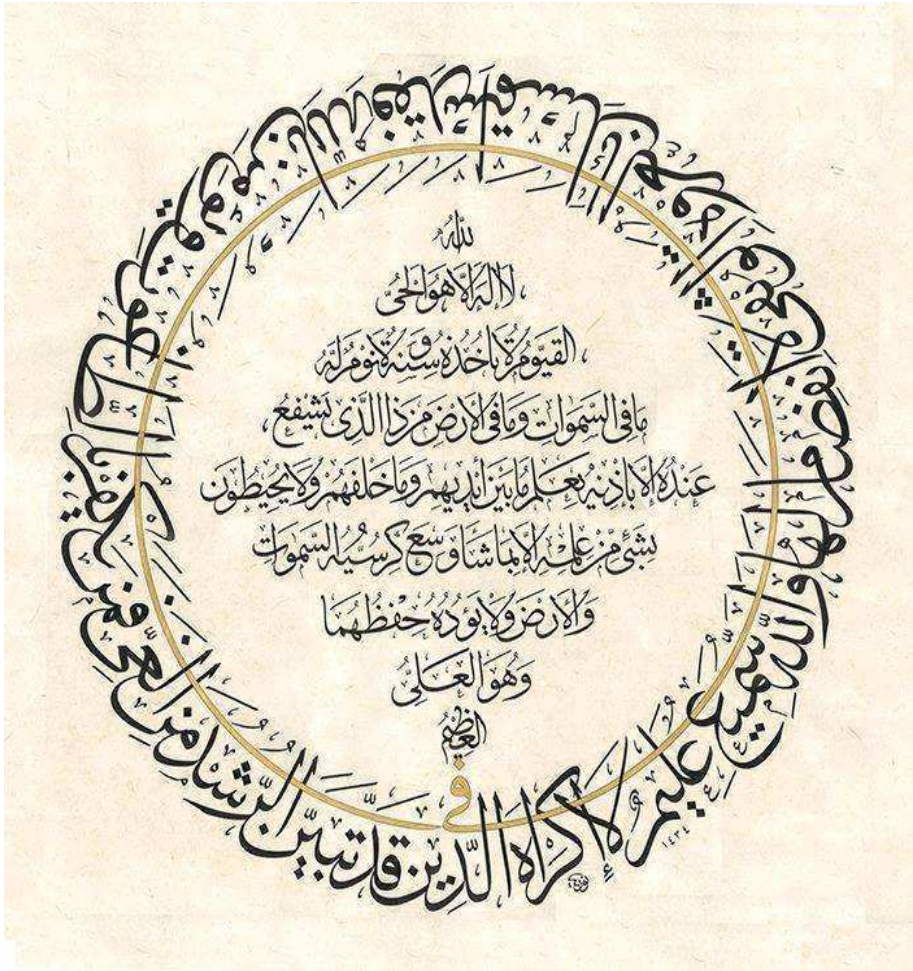 الله
لا اله الا هو الحي
القيوم لا تأخذه سنة ولا نوم له
ما في السموات وما في الارض من ذا الذي يشفع
عنده الا باذنه يعلم ما بين ايديهم وما خلفهم ولا يحيطون
بشئ من علمه الا بما شا وسع كرسيه السموات
والارض ولا يؤده حفظهما
وهو العلي
العظيم
لا إكراه في الدين قد تبين الرشد من الغي فمن يكفر بالطاغوت ويؤمن بالله فقد استمسك بالعروة الوثقى لا انفصام لها والله سميع عليم
١٤٣٤